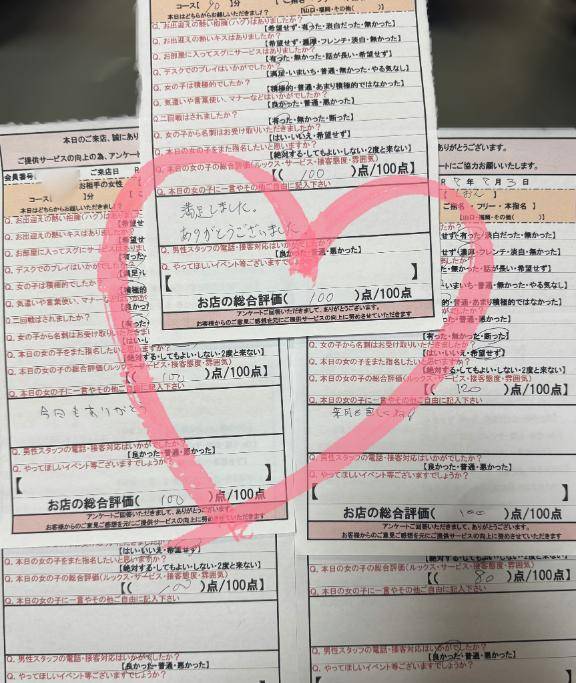 コース(90)分
本日はどちらからお越しいただきましたか?
【山口・福岡・その他( )】
Q. お出迎えの熱い抱擁(ハグ)はありましたか?
【希望せず・有った・淡白だった・無かった】
Q. お出迎えの熱いキスはありましたか?
【希望せず・濃厚・フレンチ・淡白・無かった】
Q. お部屋に入ってスグにサービスはありましたか?
【有った・無かった・話が長い・希望せず】
Q. デスクでのプレイはいかがでしたか?
【満足・いまいち・普通・無かった・やる気なし】
Q. 女の子は積極的でしたか?
【積極的・普通・あまり積極的ではなかった】
Q. 気遣いや言葉使い、マナーなどはいかがでしたか?
【良かった・普通・悪かった】
Q. 二回戦はされましたか?
【有った・無かった・断った】
Q. 女の子から名刺はお受け取りいただきましたか?
【はい・いいえ・希望せず】
Q. 本日の女の子をまた指名したいと思いますか?
【絶対する・してもよい・しない・2度と来ない】
Q. 本日の女の子の総合評価(ルックス・サービス・接客態度・雰囲気)
【( 100 )点/100点】
Q. 本日の女の子に一言やその他ご自由に記入下さい
満足しました。
ありがとうございました
Q. 男性スタッフの電話・接客対応はいかがでしたか?
【良かった・普通・悪かった】
Q. やってほしいイベント等ございますでしょうか?
【 】
お店の総合評価( 100 )点/100点
アンケートご回答いただきまして、ありがとうございます。
お客様からのご意見ご感想を元にご提供サービスの向上に努めさせていただきます
本日のご来店、誠にあり
ご提供サービスの向上の為、アンケート
会員番号
ご来店日 R
お相手の女性
コース(
本日はどちらからお越しいただきましたか?
Q. お出迎えの熱い抱擁(ハグ)はありましたか
【希望せ
Q. お出迎えの熱いキスはありましたか?
【希望せ
Q. お部屋に入ってスグにサービスはありまし
【有った
Q. デスクでのプレイはいかがでしたか?
【満足・い
Q. 女の子は積極的でしたか?
【積極的
Q. 気遣いや言葉使い、マナーなどはいかが
【良かっ
Q. 二回戦はされましたか?
【有った
Q. 女の子から名刺はお受け取り
【はい・い
Q. 本日の女の子をまた指名したいと思いますか?
【絶対する・してもよい・しない・2度と来ない】
Q. 本日の女の子の総合評価(ルックス・サービス・接客態度・雰囲気)
【( 100 )点/100点】
Q. 本日の女の子に一言やその他ご自由に記入下さい
今回もありがとう
Q. 男性スタッフの電話・接客対応はいかがでしたか?
【良かった・普通・悪かった】
Q. やってほしいイベント等ございますでしょうか?
【 】
お店の総合評価( 100 )点/100点
アンケートご回答いただきまして、ありがとうございます。
お客様からのご意見ご感想を元にご提供サービスの向上に努めさせていただきます
ありがとうございます。
ートにご協力お願いいたします。
R 7年 8月 3日
ご指名 フリー・本指名】
【山口・福岡・その他( )】
せず・有った・淡白だった・無かった】
せず・濃厚・フレンチ・淡白・無かった】
た・無かった・話が長い・希望せず】
いまいち・普通・無かった・やる気なし】
的・普通・あまり積極的ではなかった】
った・普通・悪かった】
【有った・無かった・断った】
【はい・いいえ・希望せず】
Q. 本日の女の子をまた指名したいと思いますか?
【絶対する・してもよい・しない・2度と来ない】
Q. 本日の女の子の総合評価(ルックス・サービス・接客態度・雰囲気)
【( 120 )点/100点】
Q. 本日の女の子に一言やその他ご自由に記入下さい
Q. 男性スタッフの電話・接客対応はいかがでしたか?
【良かった・普通・悪かった】
Q. やってほしいイベント等ございますでしょうか?
【 】
お店の総合評価( 100 )点/100点
アンケートご回答いただきまして、ありがとうございます。
お客様からのご意見ご感想を元にご提供サービスの向上に努めさせていただきます
【はい・いいえ・希望せず】
Q. 本日の女の子をまた指名したいと思いますか?
【絶対する・してもよい・しない・2度と来ない】
Q. 本日の女の子の総合評価(ルックス・サービス・接客態度・雰囲気)
【( 100 )点/100点】
Q. 本日の女の子に一言やその他ご自由に記入下さい
Q. 男性スタッフの電話・接客対応はいかがでしたか?
【良かった・普通・悪かった】
Q. やってほしいイベント等ございますでしょうか?
【絶対する・してもよい・しない・2度と来ない】
Q. 本日の女の子の総合評価(ルックス・サービス・接客態度・雰囲気)
【( 80 )点/100点】
Q. 本日の女の子に一言やその他ご自由に記入下さい
Q. 男性スタッフの電話・接客対応はいかがでしたか?
【良かった・普通・悪かった】
Q. やってほしいイベント等ございますでしょうか?